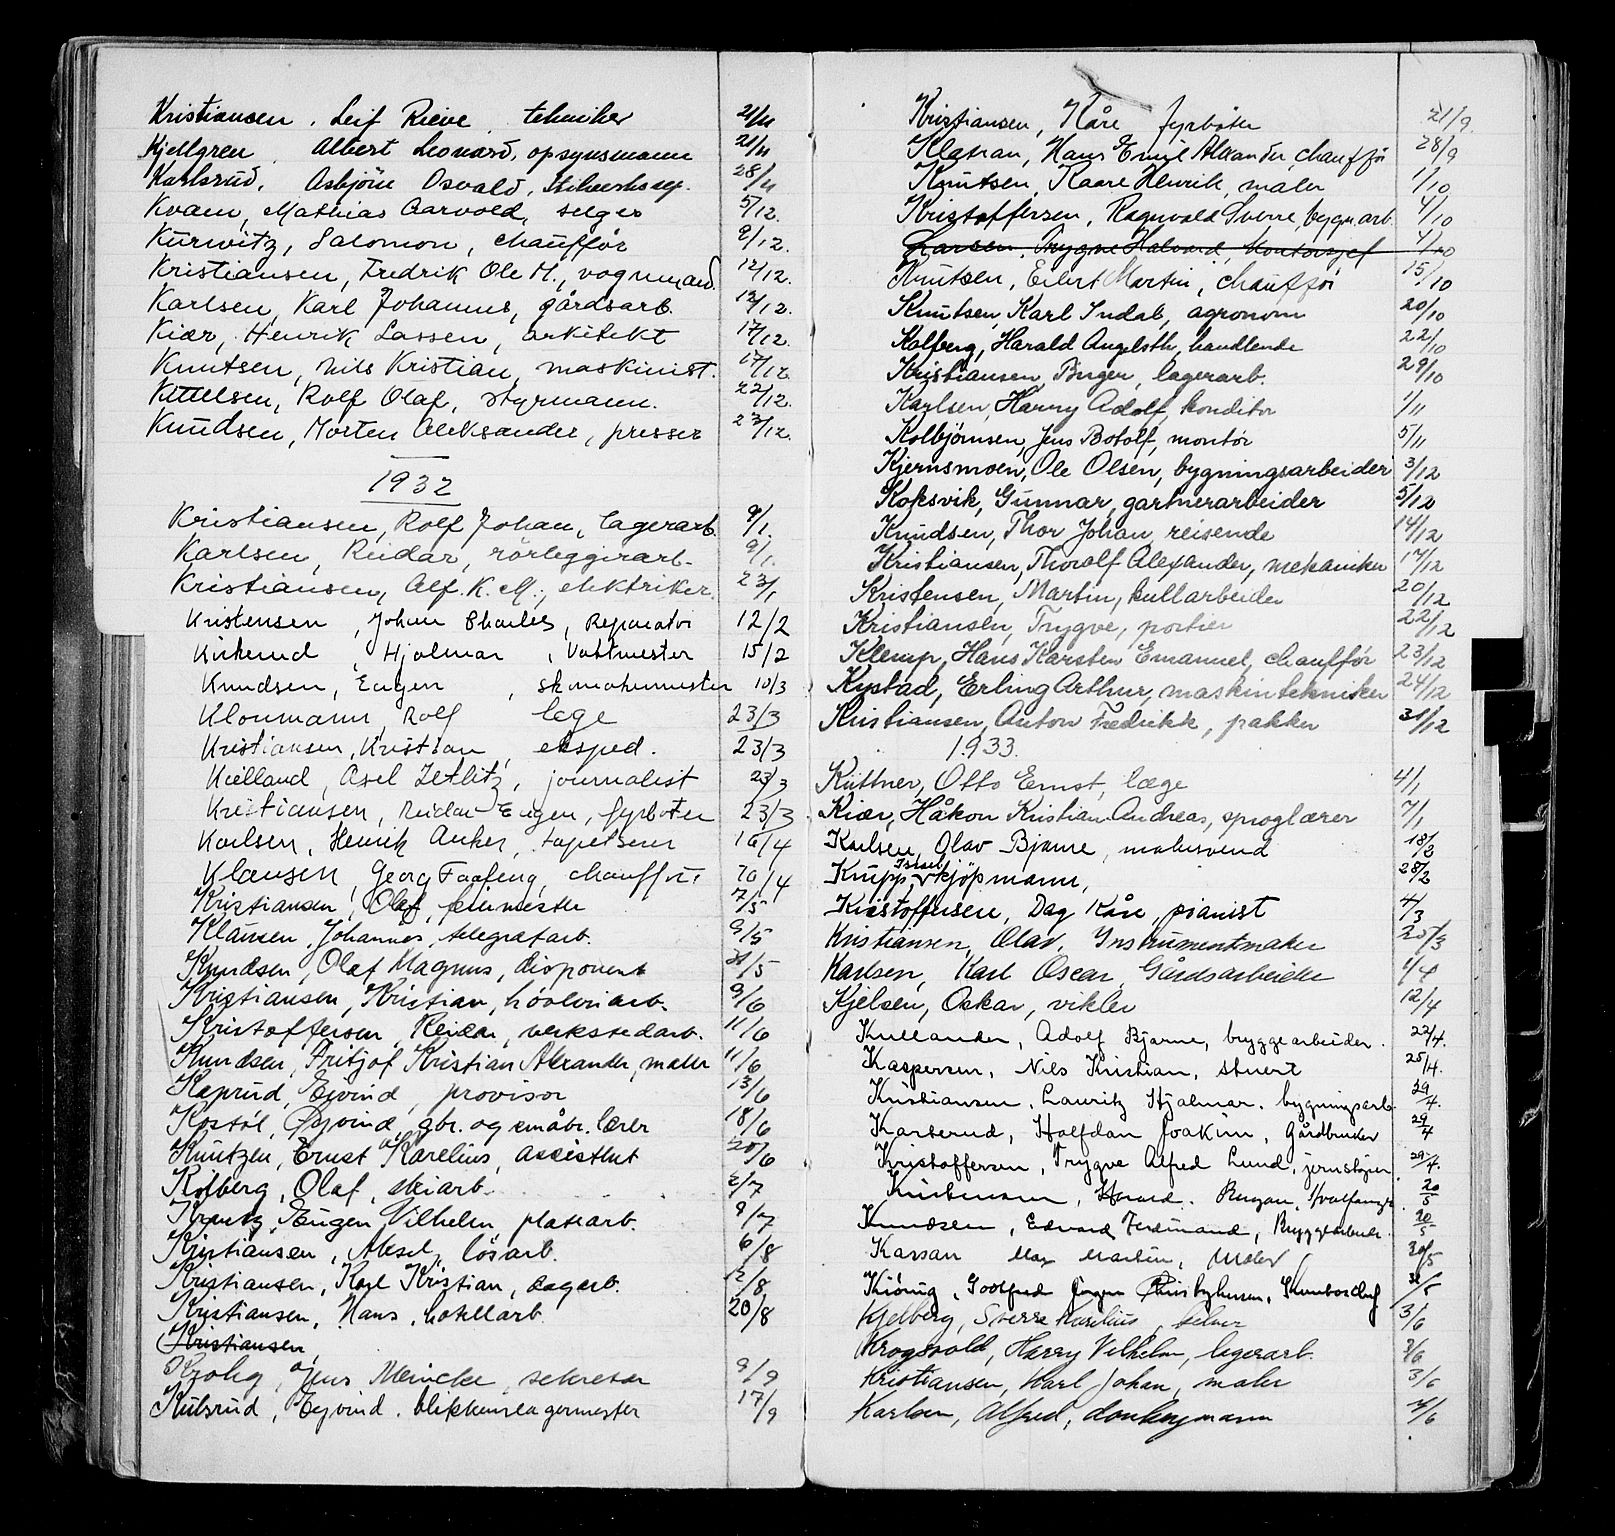 Kristiansen, Leif Rieve, tekniker 21/11
Kjellgren, Albert Leonard, opsynsmann 21/11
Karlsrud, Asbjörn Osvald, 28/11
Kvam, Mathias Aarvold, selger 5/12.
Kurwitz, Salomon, chauffør 9/12.
Kristiansen, Fredrik Ole M., vognmand. 12/12.
Karlsen, Karl Johannes, gårdsarb. 12/12.
Kiær, Henrik Lassen, arkitekt 17/12.
Knutsen, Nils Kristian, maskinist. 17/12.
Kittelsen, Rolf Olaf, styrmann. 22/12.
Knudsen, Morten Aleksander, presser 23/12.
1932
Kristiansen, Rolf Johan, lagerarb. 9/1.
Karlsen, Reidar, rörleggerarb. 9/1.
Kristiansen, Alf. K. M., elektriker. 23/1
Kristensen, Johan Charles, Reparatør 12/2
Kirkerud, Hjalmar, Vaktmester 15/2
Knudsen, Eugen, skomakermester 10/3
Kloumann, Rolf lege 23/3
Kristiansen, Kristian, eksped. 23/3
Kielland, Axel Zetlitz, journalist 23/3
Kristiansen, Reidar Eugen, fyrbøter 23/3
Karlsen, Henrik Anker, tapetserer 16/4
Klausen, Georg Faafeng, chauffør 20/4
Kristiansen, Olaf, feiermester 7/5
Klausen, Johannes, telegrafarb. 9/5
Knudsen, Olaf Magnus, disponent 31/5
Kristiansen, Kristian, høvleriarb. 9/6
Kristoffersen, Reidar, verkstedarb. 11/6
Knudsen, Fritjof Kristian Alexander, maler 11/6
Kaprud, Eivind, provisor 13/6
Kostöl, Øyvind, gbr. og småbr. lærer 18/6
Knutzen, Ernst af Karelius, assistent 20/6
Kolberg, Olaf, skiarb. 2/7
Krantz, Eugen Vilhelm, platearb. 9/7
Kristiansen, Aksel, løsarb. 6/8
Kristiansen, Karl Kristian, lagarb. 12/8
Kristiansen, Hans, hotellarb. 20/8
Kristiansen,
Krohg, Jens Meincke, sekretær 9/9
Kulsrud, Eyvind, blikkenslagermester 17/9
Kristiansen, Kåre fyrbøter 21/9.
Klatran, Hans Emil Alexander, chauffør 28/9
Knutsen, Kaare Henrik, maler 1/10
Kristoffersen, Ragnvald Sverre, bygn.arb. 4/10
Larsen, Trygve Halvard, kontorsjef 4/10
Knutsen, Eilert Martin, chauffør 15/10
Knutsen, Karl Indal, agronom 20/10
Kolberg, Harald Angelsth, handlende 22/10
Kristiansen, Birger, lagerarb. 29/10
Karlsen, Harry Adolf, konditor 1/11
Kolbjørnsen, Jens Botolf, montör 5/11
Kjernsmoen, Ole Olsen, bygningsarbeider 3/12
Koksvik, Gunnar, gartnerarbeider 5/12
Knudsen, Thor Johan, reisende 14/12
Kristiansen, Thoralf Alexander, mekaniker 17/12
Kristensen, Martin, kullarbeider 20/12
Kristiansen, Trygve, portier 22/12
Klemp, Hans Karsten Emanuel, chauffør 23/12
Kystad, Erling Arthur, maskintekniker 24/12
Kristiansen, Anton Fredrikk, pakker 31/12
1933.
Küttner, Otto Ernst, læge 4/1
Kiær, Håkon Kristian Andreas, sproglærer 7/1
Karlsen, Olav Bjarne, malersvend 18/2
Krupp, Israel kjöpmann, 28/2
Kristoffersen, Dag Kåre, pianist 4/3
Kristiansen, Olav, Instrumentmaker 25/3
Karlsen, Karl Oscar, Gårdsarbeider 1/4
Kjelsen, Oskar, vikler 12/4
Kullander, Adolf Bjarne, bryggearbeider. 22/4.
Kaspersen, Nils Kristian, stuert 25/4.
Kristiansen, Lauritz Hjalmar, bygningsarb. 29/4.
Karterud, Halfdan Joakim, Gårdbruker 29/4
Kristoffersen, Trygve Alfred Lund, 29/4.
Harald. 20/5
Knudsen, Edvard Ferdinand, Bryggearbeider. 20/5
Karsan Max Martin, Maler 30/5
Kiönig, Godtfred Jörgen 31/5
Kjelberg, Sverre Karelius, 3/6
Krogsvold, Harry Vilhelm, lagerarb. 3/6
Kristiansen, Karl Johan, maler 3/6
Karlsen, Alfred, donkeymann 14/6